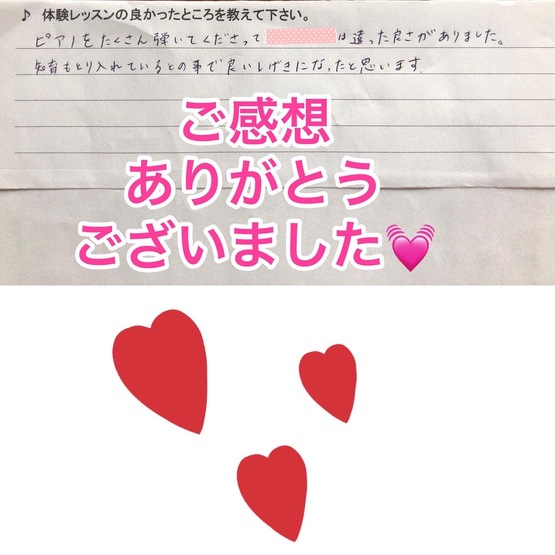 ♪ 体験レッスンの良かったところを教えて下さい。
ピアノをたくさん弾いてくださって は違った良さがありました。
知育もとり入れているとの事で良いしげきになったと思います.
ご感想
ありがとう
ございました💓